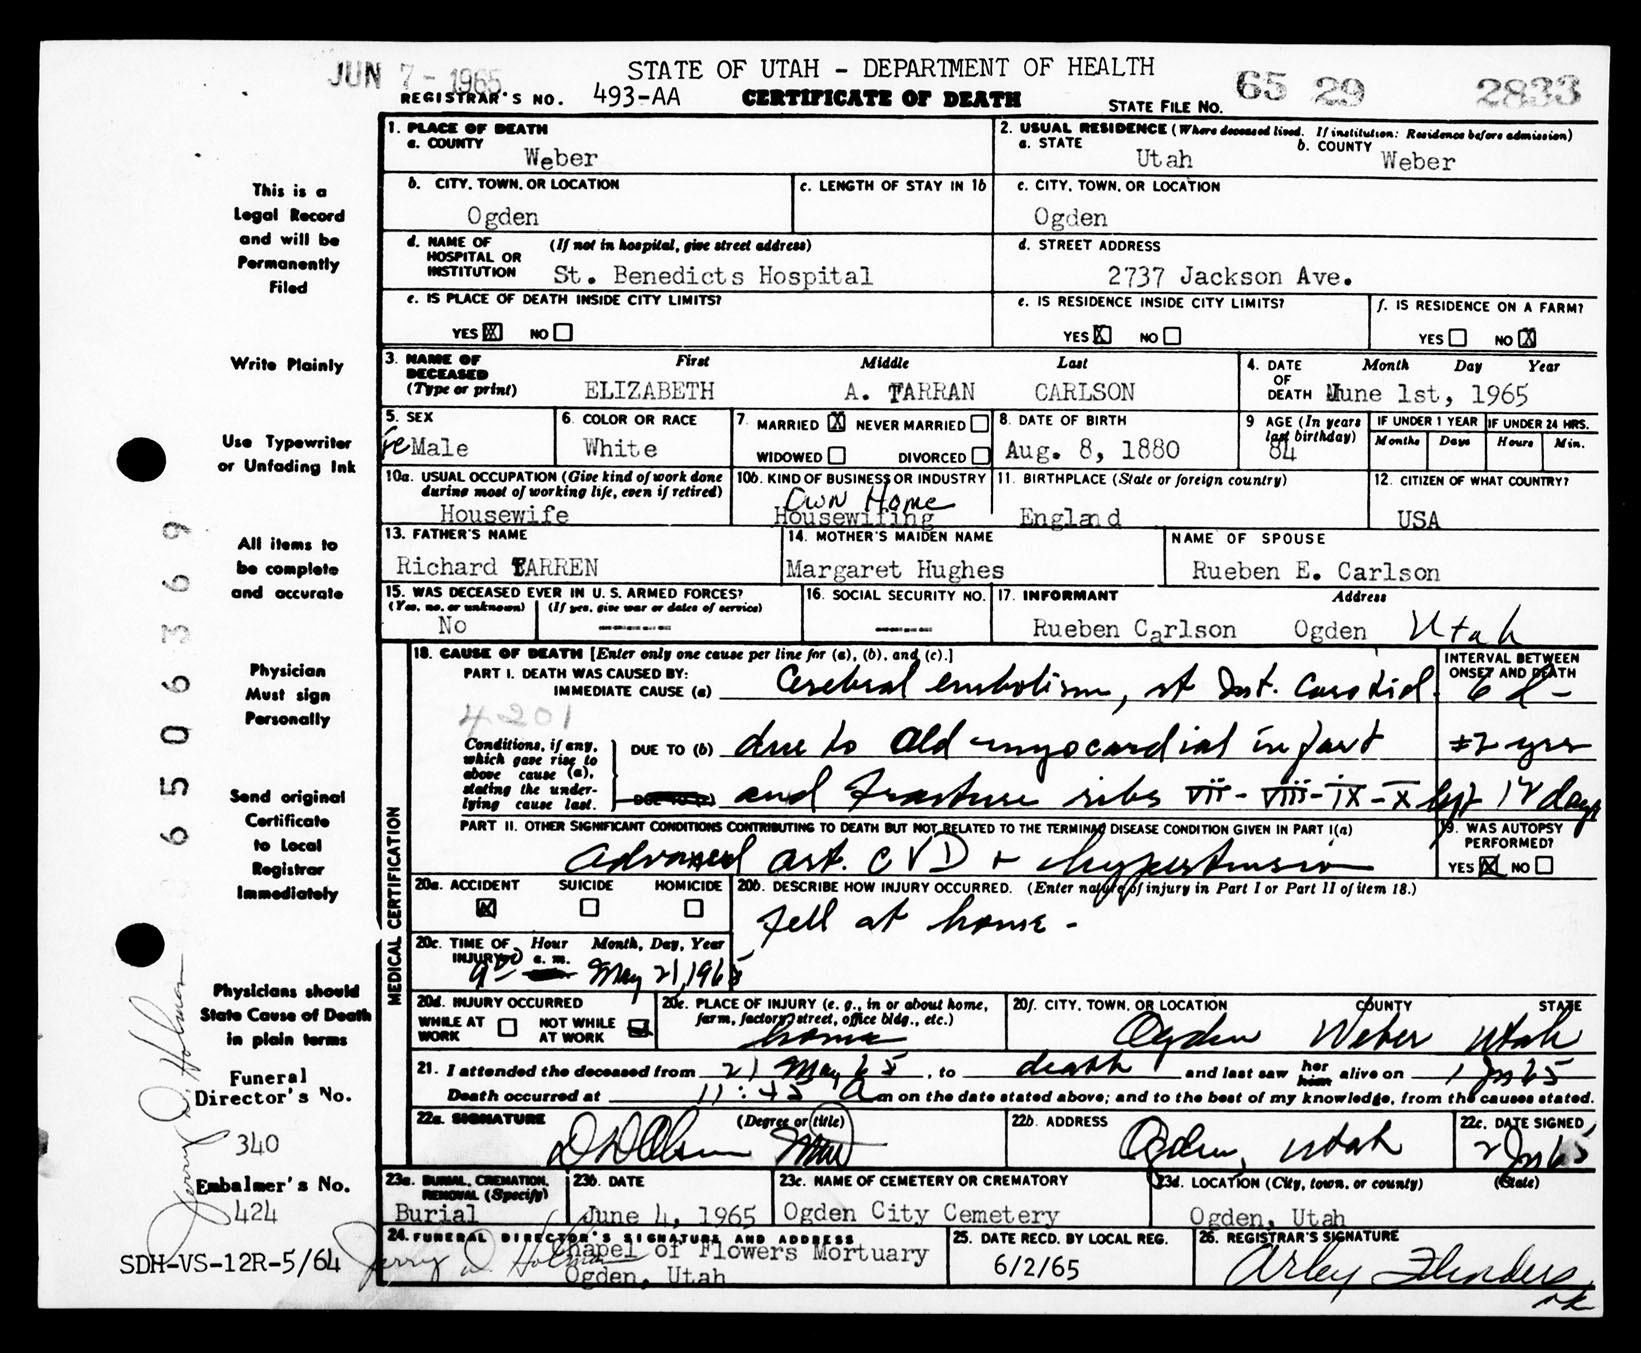 JUN 7 - 1965
STATE OF UTAH - DEPARTMENT OF HEALTH
REGISTRAR'S NO. 493-AA CERTIFICATE OF DEATH STATE FILE NO. 65 29 2833
1. PLACE OF DEATH
a. COUNTY
Weber
2. USUAL RESIDENCE (Where deceased lived. If institution: Residence before admission)
a. STATE b. COUNTY
Utah Weber
b. CITY, TOWN, OR LOCATION
Ogden
c. LENGTH OF STAY IN 1b
c. CITY, TOWN, OR LOCATION
Ogden
d. NAME OF HOSPITAL OR INSTITUTION (If not in hospital, give street address)
St. Benedicts Hospital
d. STREET ADDRESS
2737 Jackson Ave.
e. IS PLACE OF DEATH INSIDE CITY LIMITS?
YES X NO
e. IS RESIDENCE INSIDE CITY LIMITS?
YES X NO
f. IS RESIDENCE ON A FARM?
YES NO X
3. NAME OF DECEASED (Type or print)
First Middle Last
ELIZABETH A. TARRAN CARLSON
4. DATE OF DEATH Month Day Year
June 1st, 1965
5. SEX
feMale
6. COLOR OR RACE
White
7. MARRIED X NEVER MARRIED
WIDOWED DIVORCED
8. DATE OF BIRTH
Aug. 8, 1880
9 AGE (In years last birthday)
84
IF UNDER 1 YEAR IF UNDER 24 HRS.
Months Days Hours Min.
10a. USUAL OCCUPATION (Give kind of work done during most of working life, even if retired)
Housewife
10b. KIND OF BUSINESS OR INDUSTRY
Own Home
Housewifing
11. BIRTHPLACE (State or foreign country)
England
12. CITIZEN OF WHAT COUNTRY?
USA
13. FATHER'S NAME
Richard TARREN
14. MOTHER'S MAIDEN NAME
Margaret Hughes
NAME OF SPOUSE
Rueben E. Carlson
15. WAS DECEASED EVER IN U.S. ARMED FORCES?
(Yes, no, or unknown) (If yes, give war or dates of service)
No -------
16. SOCIAL SECURITY NO.
------
17. INFORMANT Address
Rueben Carlson Ogden Utah
MEDICAL CERTIFICATION
18. CAUSE OF DEATH [Enter only one cause per line for (a), (b), and (c).]
INTERVAL BETWEEN ONSET AND DEATH
PART I. DEATH WAS CAUSED BY:
IMMEDIATE CAUSE (a) Cerebral embolism, rt Int. Carotid. 6 d-
4201
Conditions, if any, which gave rise to above cause (a), stating the underlying cause last.
DUE TO (b) due to old myocardial infarct ±2 yrs
DUE TO (c) and fracture ribs VII - VIII - IX - X left 12 days
PART II. OTHER SIGNIFICANT CONDITIONS CONTRIBUTING TO DEATH BUT NOT RELATED TO THE TERMINAL DISEASE CONDITION GIVEN IN PART I(a)
Advanced art. CVD + hypertension
19. WAS AUTOPSY PERFORMED?
YES X NO
20a. ACCIDENT SUICIDE HOMICIDE
X
20b. DESCRIBE HOW INJURY OCCURRED. (Enter nature of injury in Part I or Part II of item 18.)
fell at home -
20c. TIME OF INJURY Hour a. m. Month, Day, Year
May 21, 1965
20d. INJURY OCCURRED
WHILE AT WORK NOT WHILE AT WORK
20e. PLACE OF INJURY (e. g., in or about home, farm, factory, street, office bldg., etc.)
home
20f. CITY, TOWN, OR LOCATION COUNTY STATE
Ogden Weber Utah
21. I attended the deceased from 21 May 65, to death and last saw her him alive on 1 Jn 65
Death occurred at 11:45 A m on the date stated above; and to the best of my knowledge, from the causes stated.
22a. SIGNATURE (Degree or title)
D W Olsen MD
22b. ADDRESS
Ogden, Utah
22c. DATE SIGNED
2 Jn 65
23a. BURIAL, CREMATION, REMOVAL (Specify)
Burial
23b. DATE
June 4, 1965
23c. NAME OF CEMETERY OR CREMATORY
Ogden City Cemetery
23d. LOCATION (City, town, or county) (State)
Ogden, Utah
24. FUNERAL DIRECTOR'S SIGNATURE AND ADDRESS
Jerry D. Holman Chapel of Flowers Mortuary
Ogden, Utah
25. DATE RECD. BY LOCAL REG.
6/2/65
26. REGISTRAR'S SIGNATURE
Arley Flinders
rk
This is a
Legal Record
and will be
Permanently
Filed
Write Plainly
Use Typewriter
or Unfading Ink
All items to
be complete
and accurate
Physician
Must sign
Personally
Send original
Certificate
to Local
Registrar
Immediately
Physicians should
State Cause of Death
in plain terms
Funeral
Director's No.
340
Embalmer's No.
424
SDH-VS-12R-5/64
Jerry D. Holman
6506369